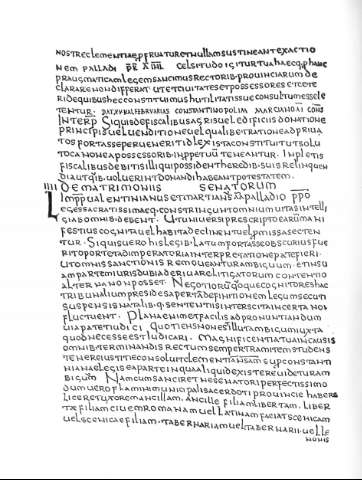 NOSTRE CLEMENTIAE PERFRUATUR ET NULLAM SUSTINEANT EXACTIO
NEM PALLADI CELSITUDO IGITUR TUA HAEC
PRAUGMATICAM LEGEM SANCIMUS RECTORIB PROUINCIARUM DE
CLARARE NON DIFFERAT UT ET CIUITATES ET POSSESSORES ET CETE
RI DE QUIBUS HEC CONSTITUIMUS HUTILITATIS SUE CONSULTUM ESSE
TENTUR FEBRUARIAS CONSTANTINOPOLIM
INTERP SI QUIS DE FISCALIBUS AGRIS UEL EDIFICIIS DONATIONE
PRINCIPIS UEL UENDITIONE UEL QUALIBET RATIONE AD PRIUA
TOS FORTASSE PERUENERIT ID LEX ISTA CONSTITUIT UT SOLU
TO CANONE A POSSESSORIB IN PERPETUUM TENEANTUR IMPLETIS
FISCALIBUS DEBITIS ILLI QUI POSSIDENT HEREDIB SUIS RELINQUEN
DI AUT QUIB UOLUERINT DONANDI HABEANT POTESTATEM
IIII DE MATRIMONIIS SENATORUM
IMPP UALENTINIANUS ET MARTIANUS A A PALLADIO PPO
LEGES SACRATISSIME QUE CONSTRINGUNT OMNIUM UITAS INTELLI
GI AB OMNIB DEBENT UT UNIUERSI PRESCRIPTO EARUM MANI
FESTIUS COGNITO UEL HABITA DECLINENT UEL PERMISSA SECTEN
TUR SI QUIS UERO HIS LEGIB LATUM FORTASSE OBSCURIUS FUE
RIT OPORTET AD IMPERATORIA INTERPRETATIONE PATEFIERI
UT OMNIS SANCTIONIS REMOUEANTUR AMBIGUUM ET IN SU
AM PARTEM IURIS DUBIA DERIUARE LITIGATORUM CONTENTIO
ALTERNA NON POSSET NEGOTIORUM QUOQUE COGNITORES HAC
TRIBUNALIUM PRESIDES APERTA DEFINITIONEM LEGUM SECUTI
SUSPENSIS NATALIB SENTENTIIS INTER SCITA INCERTA NON
FLUCTUENT PLANA ENIM ET FACILIS AD PRONUNTIANDUM
UIA PATET IUDICI QUOTIENS NON EST ILLUT AMBIGUUM IUXTA
QUOD NECESSE EST IUDICARI MAGNIFICENTIA TUA IN CAUSIS
OMNIB TERMINANDIS RECTUM SEMPER TRAMITEM STUDENS
TENERE IUSTITIE CONSOLUIT CLEMENTIAM MEAM SUP CONSTANTI
NIANAE LEGIS EA PARTE IN QUA ALIQUID EXISTERE UIDETUR AM
BIGUUM NAM CUM SANCIRET NE SENATORI PERFECTISSIMO
DUUM UERO FLAMINI MUNICIPALI SACERDOTI PROUINCIE HABERE
LICERET UXOREM ANCILLAM ANCILLE FILIAM LIBERTAM LIBER
TE FILIAM CIUEM ROMANAM UEL LATINAM FACTA SCENICAM
UEL SCENICAE FILIAM TABERNARIAM UEL TABERNARII UEL LE
NONIS